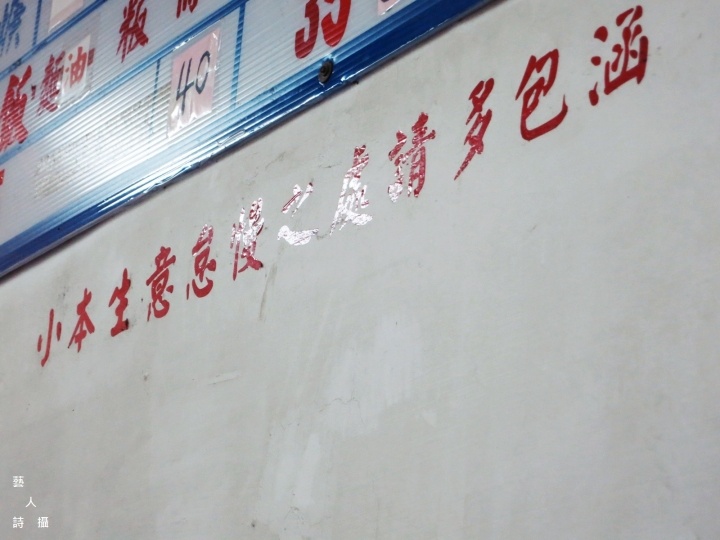 飯
麵油
粄
40
35
小本生意怠慢之處請多包涵
藝
人
詩攝